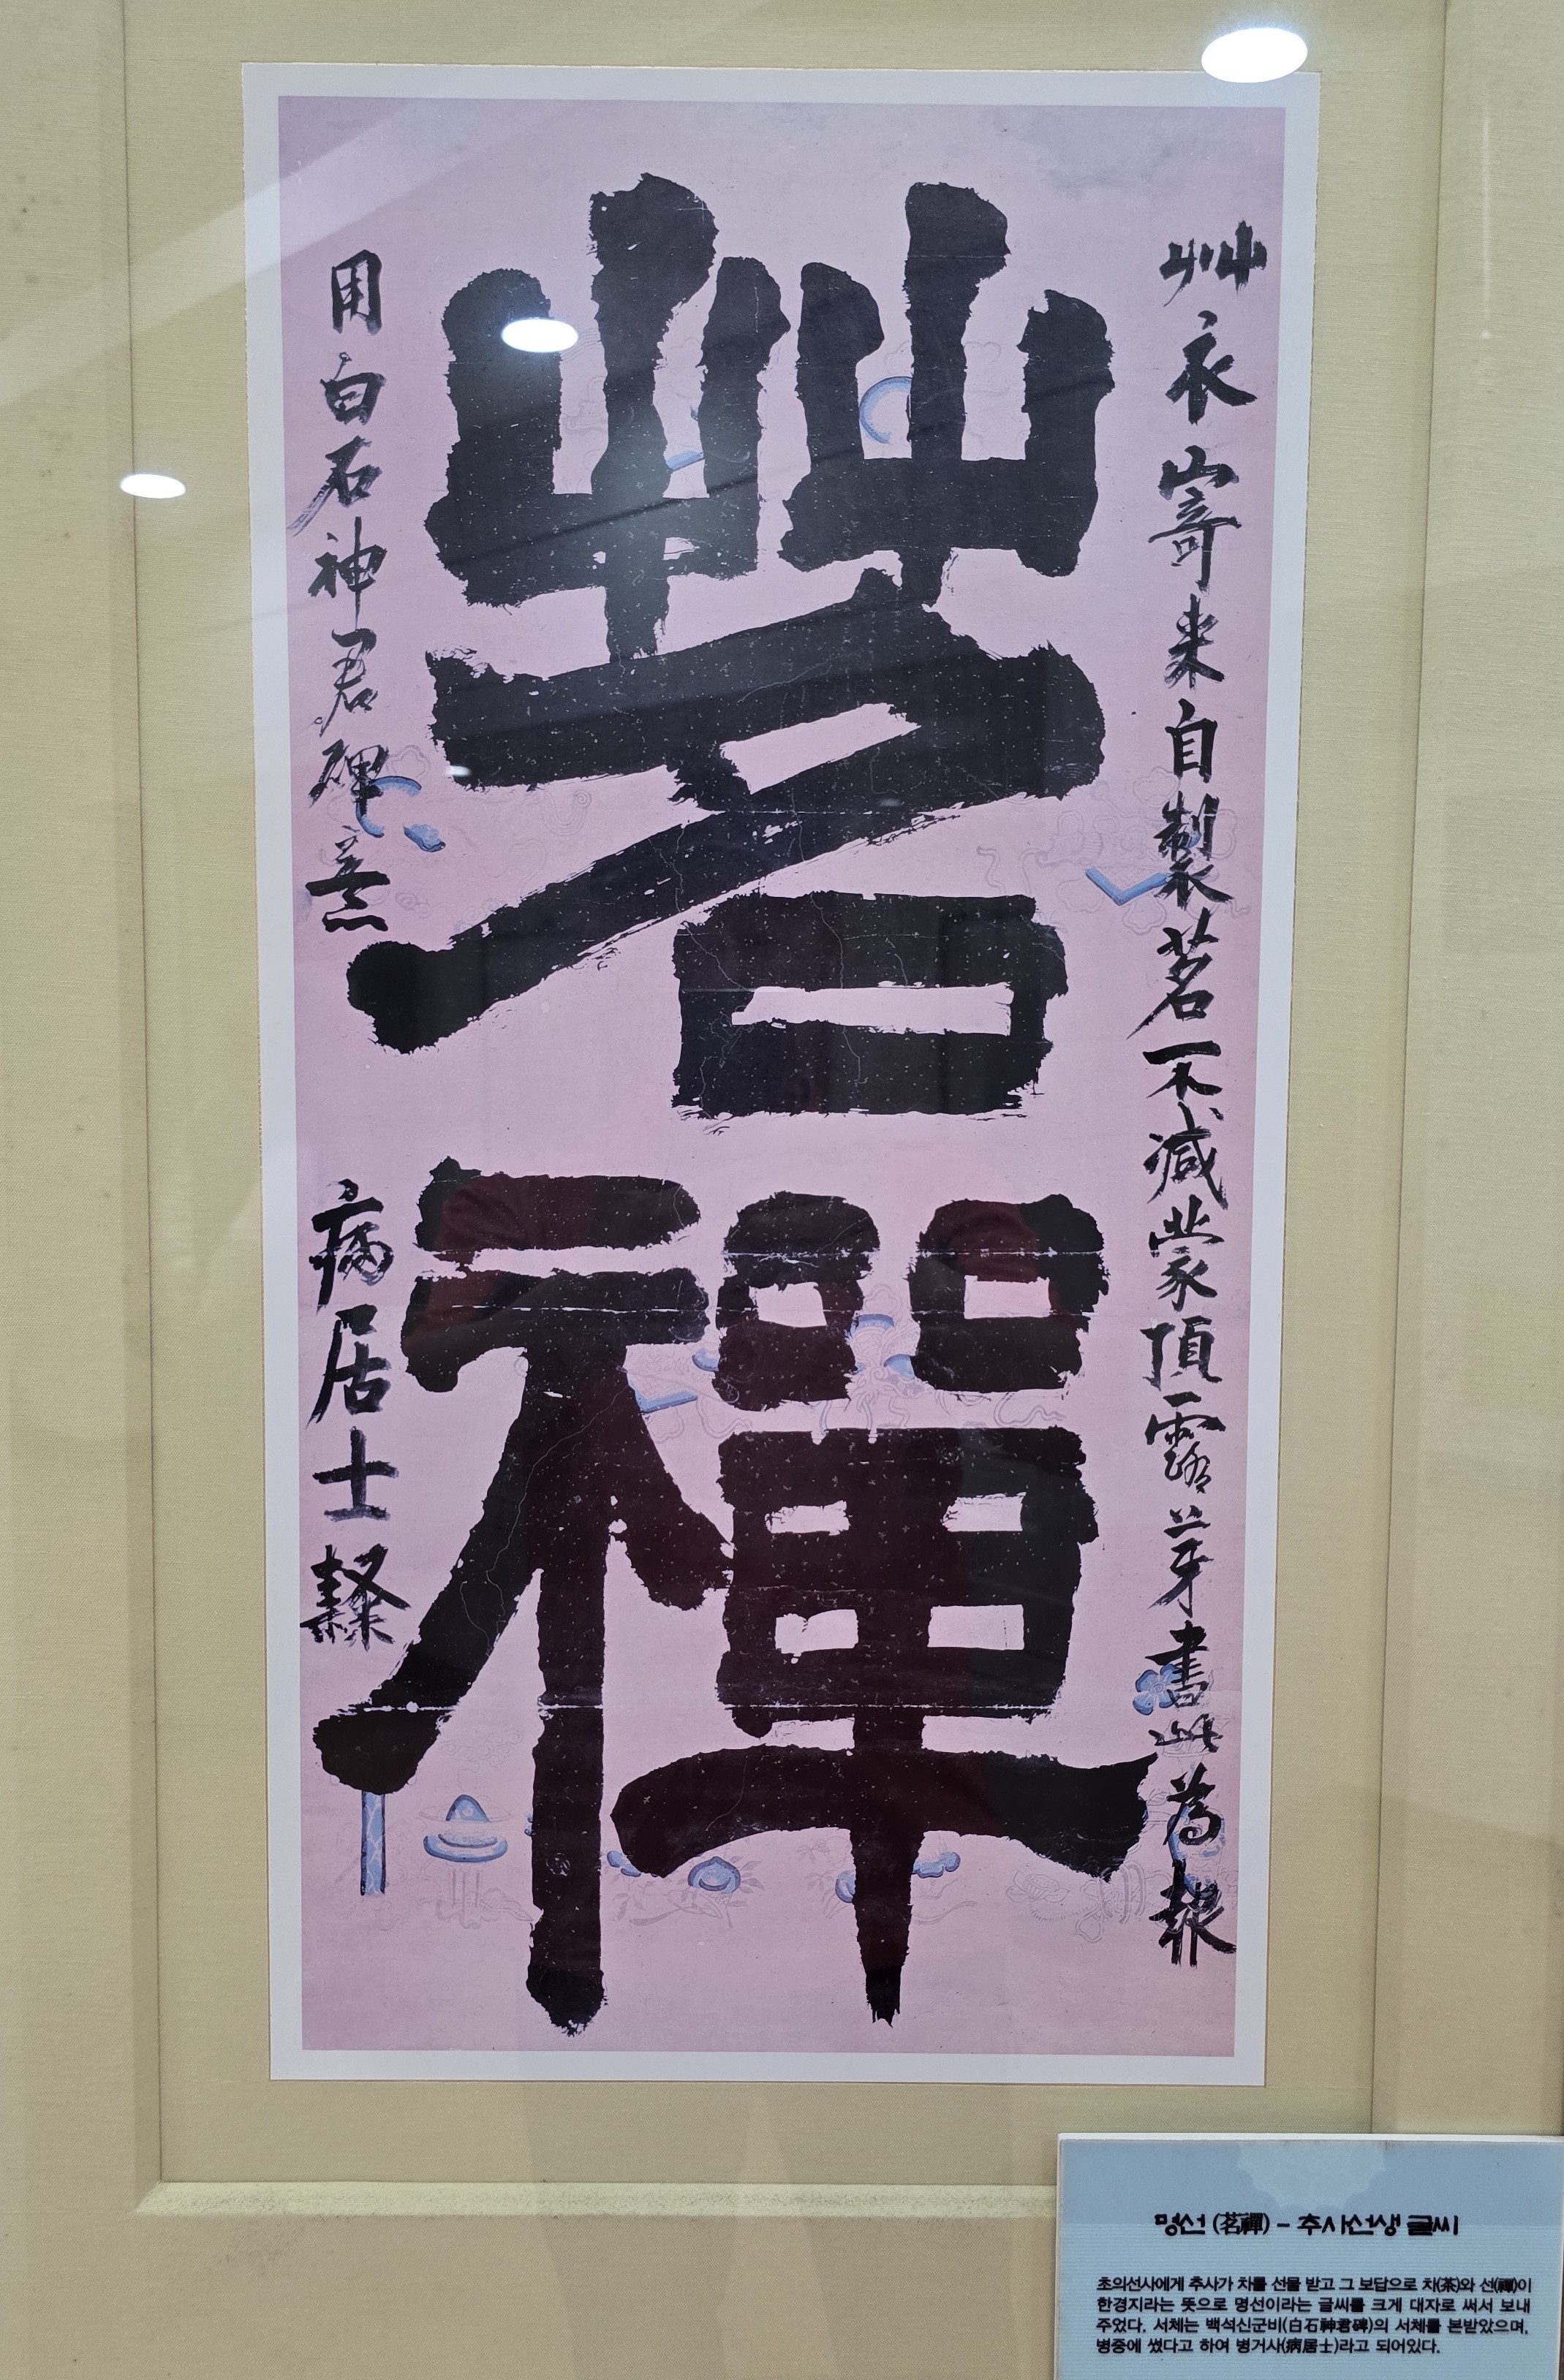 茗禪
艸衣寄來自製茗不減蒙頂露芽書此爲報
用白石神君碑意
病居士隸
명선(茗禪) - 추사선생 글씨
초의선사에게 추사가 차를 선물 받고 그 보답으로 차(茶)와 선(禪)이
한경지라는 뜻으로 명선이라는 글씨를 크게 대자로 써서 보내
주었다. 서체는 백석신군비(白石神君碑)의 서체를 본받았으며,
병중에 썼다고 하여 병거사(病居士)라고 되어있다.